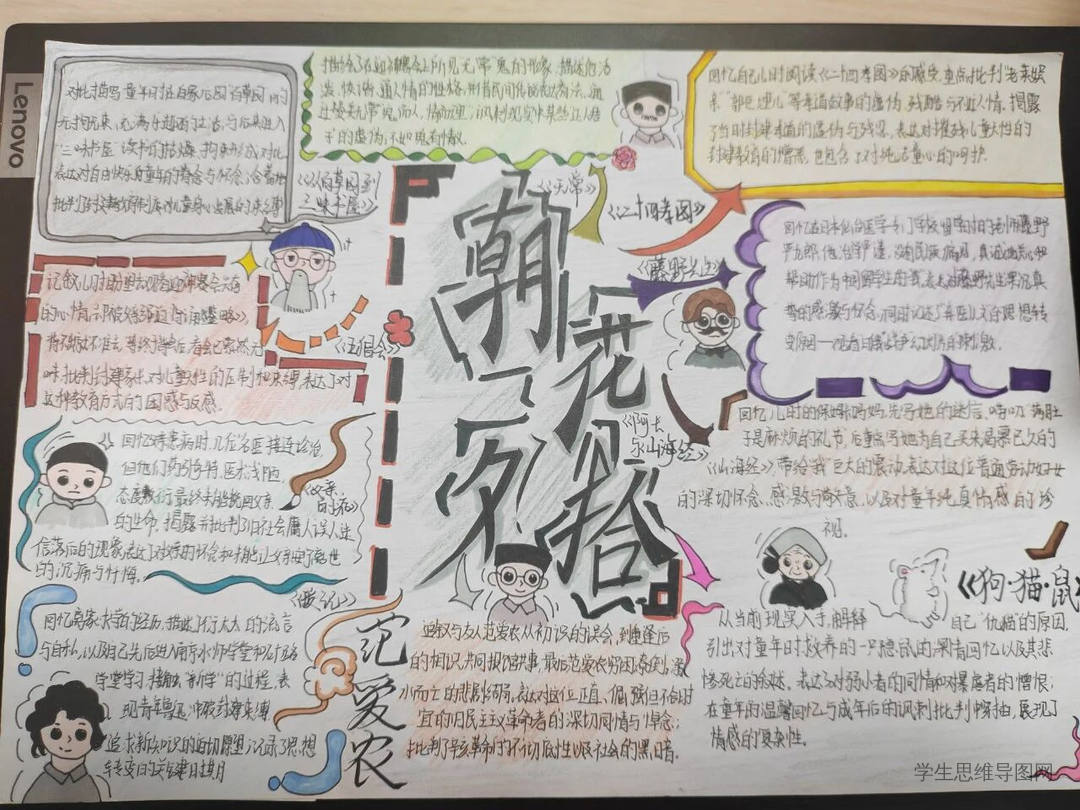 Lenovo
对比描写童年时在自家后园“百草园”的
无拘无束、充满
“三味书屋”读书的枯燥、拘束形成对比
表达对自由快乐的童年的怀念与
《从百草园到
三味书屋》
描绘了在迎神赛会上所见“无常”鬼的形象。描述他活
泼、诙谐、通人情的性格,
的虚伪,不如鬼有情。
《无常》
回忆自己儿时阅读《二十四孝图》的感受,重点批判“老莱娱
亲”“郭巨埋儿”等孝道故事的虚伪、残酷与不近人情,揭露
了当时封建孝道的虚伪与残忍,表达对摧残儿童天性的
封建教育的憎恶,也包含了对纯真童心的呵护。
《二十四孝图》
记叙儿时盼望去观看迎神赛会
的心情,却被父亲强迫背诵《鉴略》,
味,批判封建家长对儿童天性的压制和束缚,表达了对
这种教育方式的困惑与反感。
《五猖会》
朝花夕拾
《藤野先生》
回忆在日本仙台医学专门学校留学时的老师藤野
严九郎,他治学严谨、没有民族偏见,真诚地关心和
帮助作为中国留学生的我,表达对藤野先生深沉真
挚的感激与怀念,同时记述了弃医从文的思想转
回忆父亲患病时,几位名医接连诊治,
但他们药引奇特,医术浅陋,
态度敷衍,最终未能挽回父亲
的生命。揭露并批判了旧社会庸人误人、迷
信落后的现象,
的沉痛与忏悔。
《父亲
的病》
《阿长
与山海经》
回忆儿时的保姆长妈妈,先写她的迷信、唠叨、满肚
子是麻烦的礼节,后重点写她为自己买来渴慕已久的
《山海经》,带给“我”巨大的震动,表达对这位普通劳动妇女
的深切怀念、感激与敬意,以及对童年纯真情感的珍
视。
《琐记》
回忆离家求学的经历,描述了衍太太的流言
与自私,以及自己先后进入南京水师学堂和矿路
学堂学习,接触“新学”的过程,表
现青年鲁迅冲破封建束缚、
追求新知识的迫切愿望,记录了思想
转变的关键日期
范爱农
追叙与友人范爱农从初识的误会,到重逢后
的相识、共同报馆共事,最后范爱农穷困潦倒、溺
水而亡的悲剧结局,表达对这位正直、倔强但不合时
宜的旧民主主义革命者的深切同情与悼念;
批判了辛亥革命的不彻底性以及社会的黑暗。
《狗·猫·鼠》
从当前现实入手,解释
自己“仇猫”的原因,
引出对童年时救养的一只隐鼠的深情回忆以及其悲
惨死亡的叙述。表达了对弱小者的同情和对暴虐者的憎恨;
在童年的温馨回忆与成年后的讽刺批判中穿插,展现了
情感的复杂性。
学生思维导图网